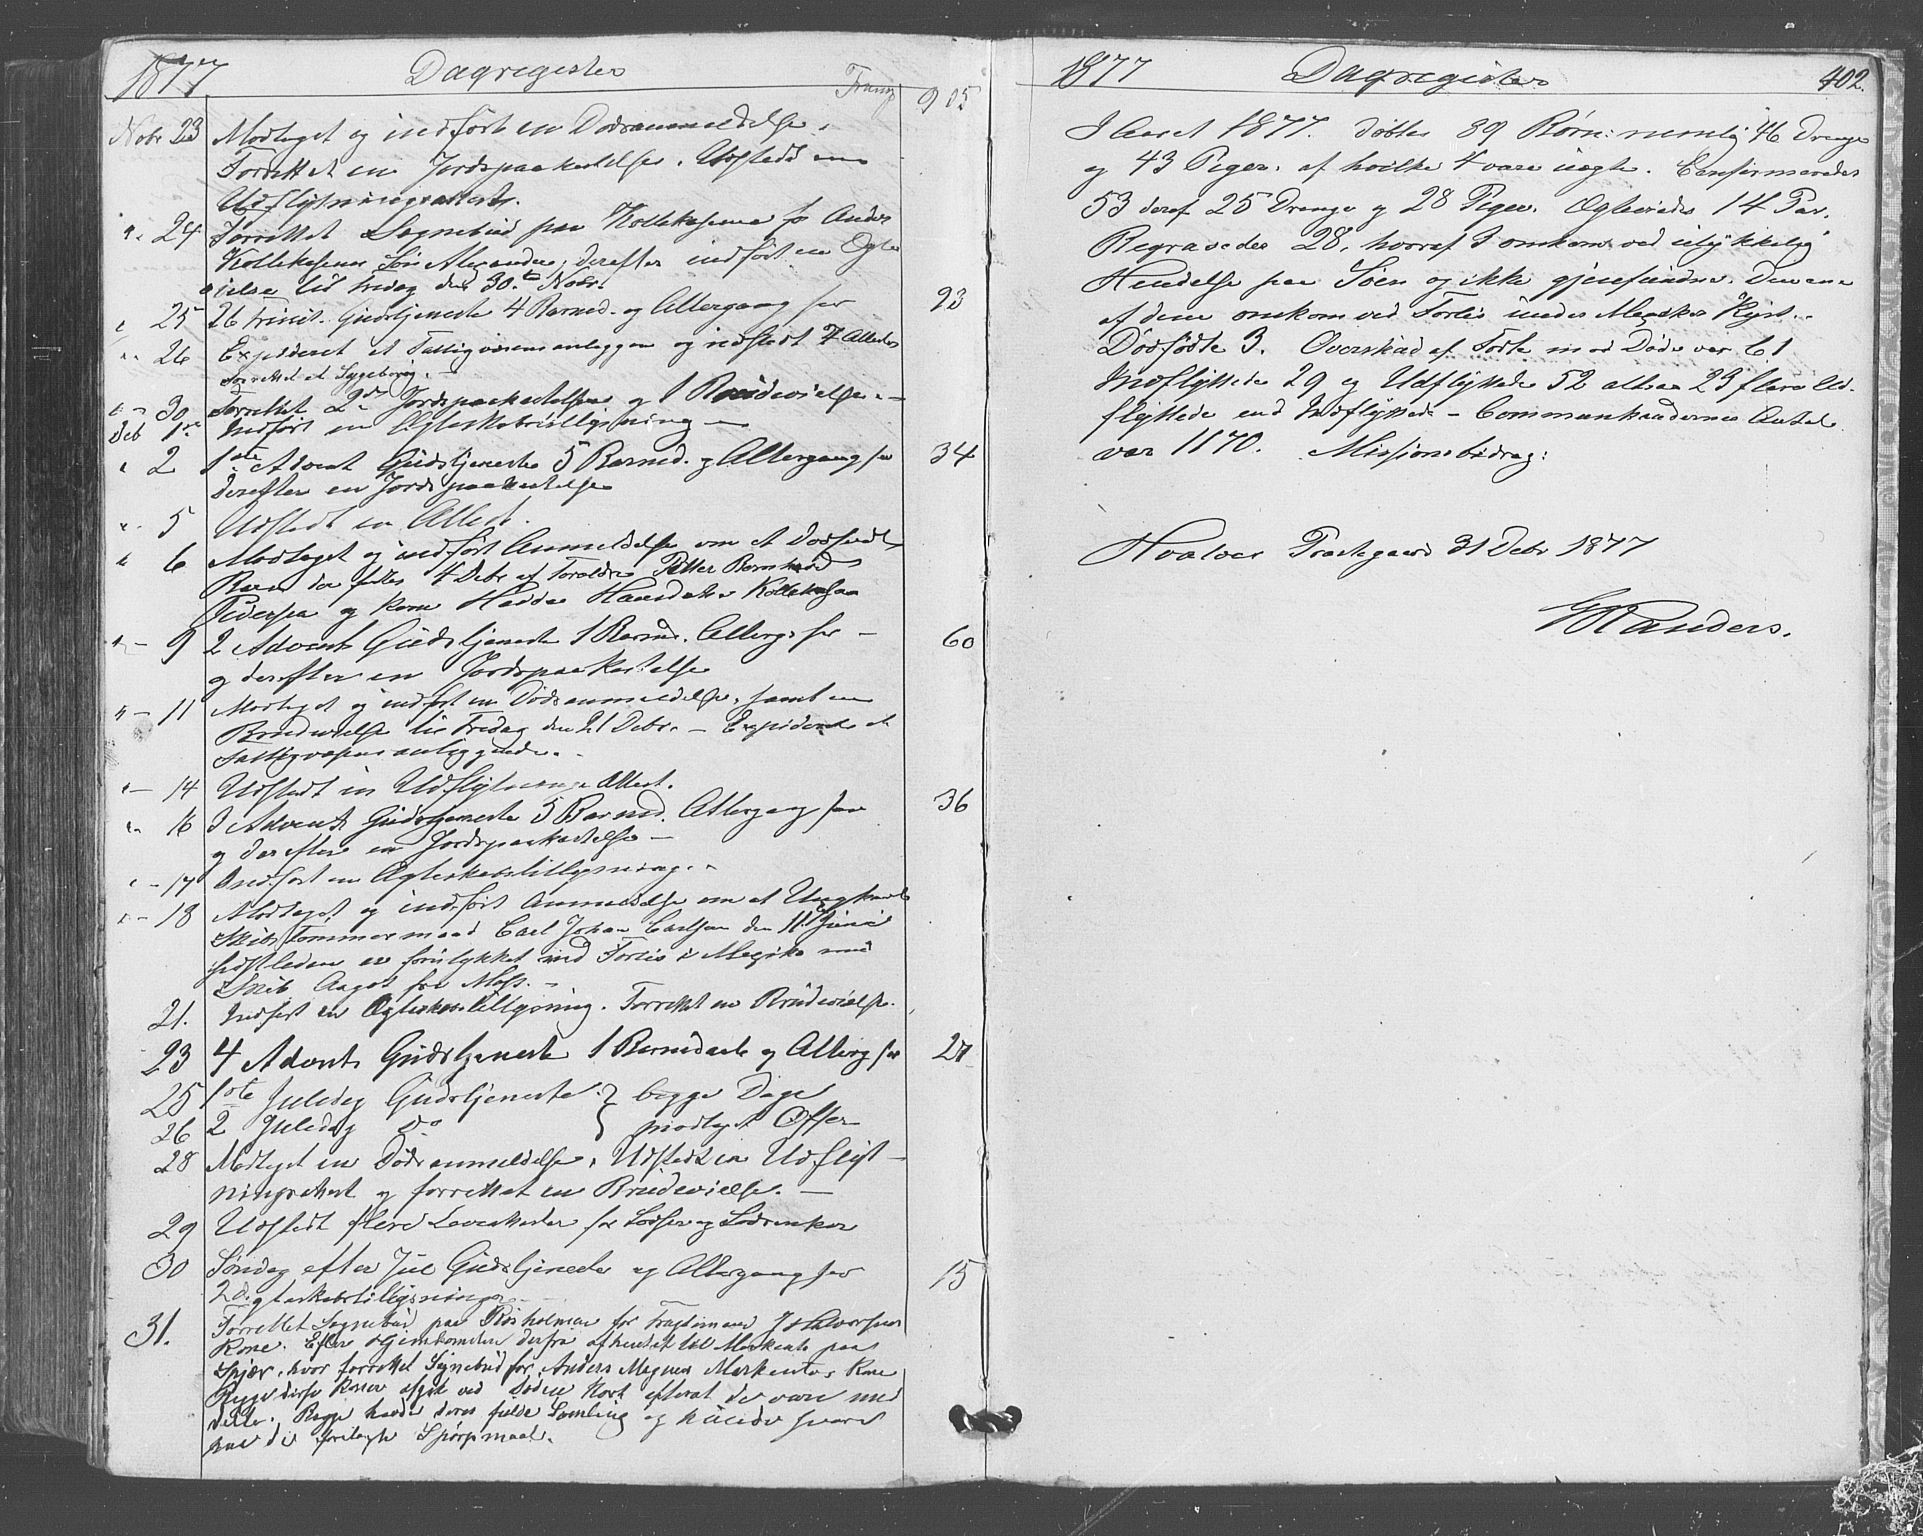 1877 Dagregister
Transp 905
Nobr 23 Modtaget og indført en Dødsanmeldelse,
Forrettet en Jordspaakastelse. Udstedt en
Udflytningsattest.
" 24 Forrettet Sognebud paa Kollekesene for Anders
Kollekesenes Søn Alexander, derefter indført en Ægte
vielse til Fredag den 30.te Nobr.
" 25 26 Trinit. Gudstjeneste 4 Barned. og Altergang for 93
" 26 Expideret et Fattigvæsensanliggende og udstedt 7 Attester
Forrettet et Sygebesøg. -
" 30 Forrettet 2de Jordspaakastelse og 1 Brudevielse. -
Deb 1ste Indført en Ægteskabstillysning -
" 2 1ste Advent Gudstjeneste 5 Barned. og Altergang for 34
derefter en Jordspaakastelse
" 5 Udstedt en Attest.
" 6 Modtaget og indført Anmeldelse om et dødfødt
Barn der fødtes 4 Debr af Forældre Petter Bernhard
Pedersen og Kone Hedda Hansdatter Kollekesene
" - 9 2 Advent Gudstjeneste 1 Barned. Alterg. for - 60
og derefter en Jordspaakastelse
" - 11 Modtaget og indført en Dødsanmeldelse, samt en
Brudevielse til Fredag den 21 Debr. - Expideret et
Fattigvæsens anliggende. -
" - 14 Udstedt en Udflytnings Attest.
" 16 3 Advent Gudstjeneste 5 Barned. Altergang for 36
og derefter en Jordspaakastelse -
" - 17 Indført en Ægteskabstillysning. -
" - 18 Modtaget og indført Anmeldelse om at Ungkarl
Skibs Tømmermand Carl Johan Carlsen den 11 Juni
sidstleden er forulykket ved Fortis i Mexiko med
Skib Aagot fra Moss. -
21. Indført en Ægteskabstillysning. Forrettet en Brudevielse.
23 4 Advent Gudstjeneste 1 Barnedaab og Alterg for 27
25 1ste Juledag Gudstjeneste } begge Dage
26 2 Juledag do } modtaget Offer
28 Modtaget en Dødsanmeldelse, Udstedt en Udflyt-
ningsattest og forrettet en Brudevielse. -
29 Udstedt flere Leveattester for Lodser og Lodsenker
30 Søndag efter Jul Gudstjeneste og Altergang for 15
2 Ægteskabstillysninger
31. Forrettet Sognebud paa Rosholmen for Fradømand J Halvorsens
Kone. Efter Hjemkomsten derfra afhentet til Markente paa
Spjær, hvor forrettet Sygnebud for Anders Magnus Markentes Kone
Begge disse Koner afgik ved Døden kort efterat de vare med
delte. Begge havde deres fulde Samling og kunde svare
paa de forelagte Spørgsmaal.
1877 Dagregister 402.
I Aaret 1877. døbtes 89 Børn: nemlig 46 Drenge
og 43 Piger. af hvilke 4 vare uægte. Confirmeredes
53 deraf 25 Drenge og 28 Piger. Ægteviedes 14 Par.
Begravedes 28, hvoraf 3 omkom ved ulykkelig
Hendelse paa Søen og ikke gjenfundne. Den ene
af dem omkom ved Fortis under Mexikos Kyst. -
Dødfødte 3. Overskud af Fødte mod Døde var 61
Indflyttede 29 og Udflyttede 52 altsaa 23 flere Ud-
flyttede end Indflyttede - Communikanternes Antal
var 1170. Missionsbidrag:
Hvaløer Præstegaard 31 Debr 1877
Randers.